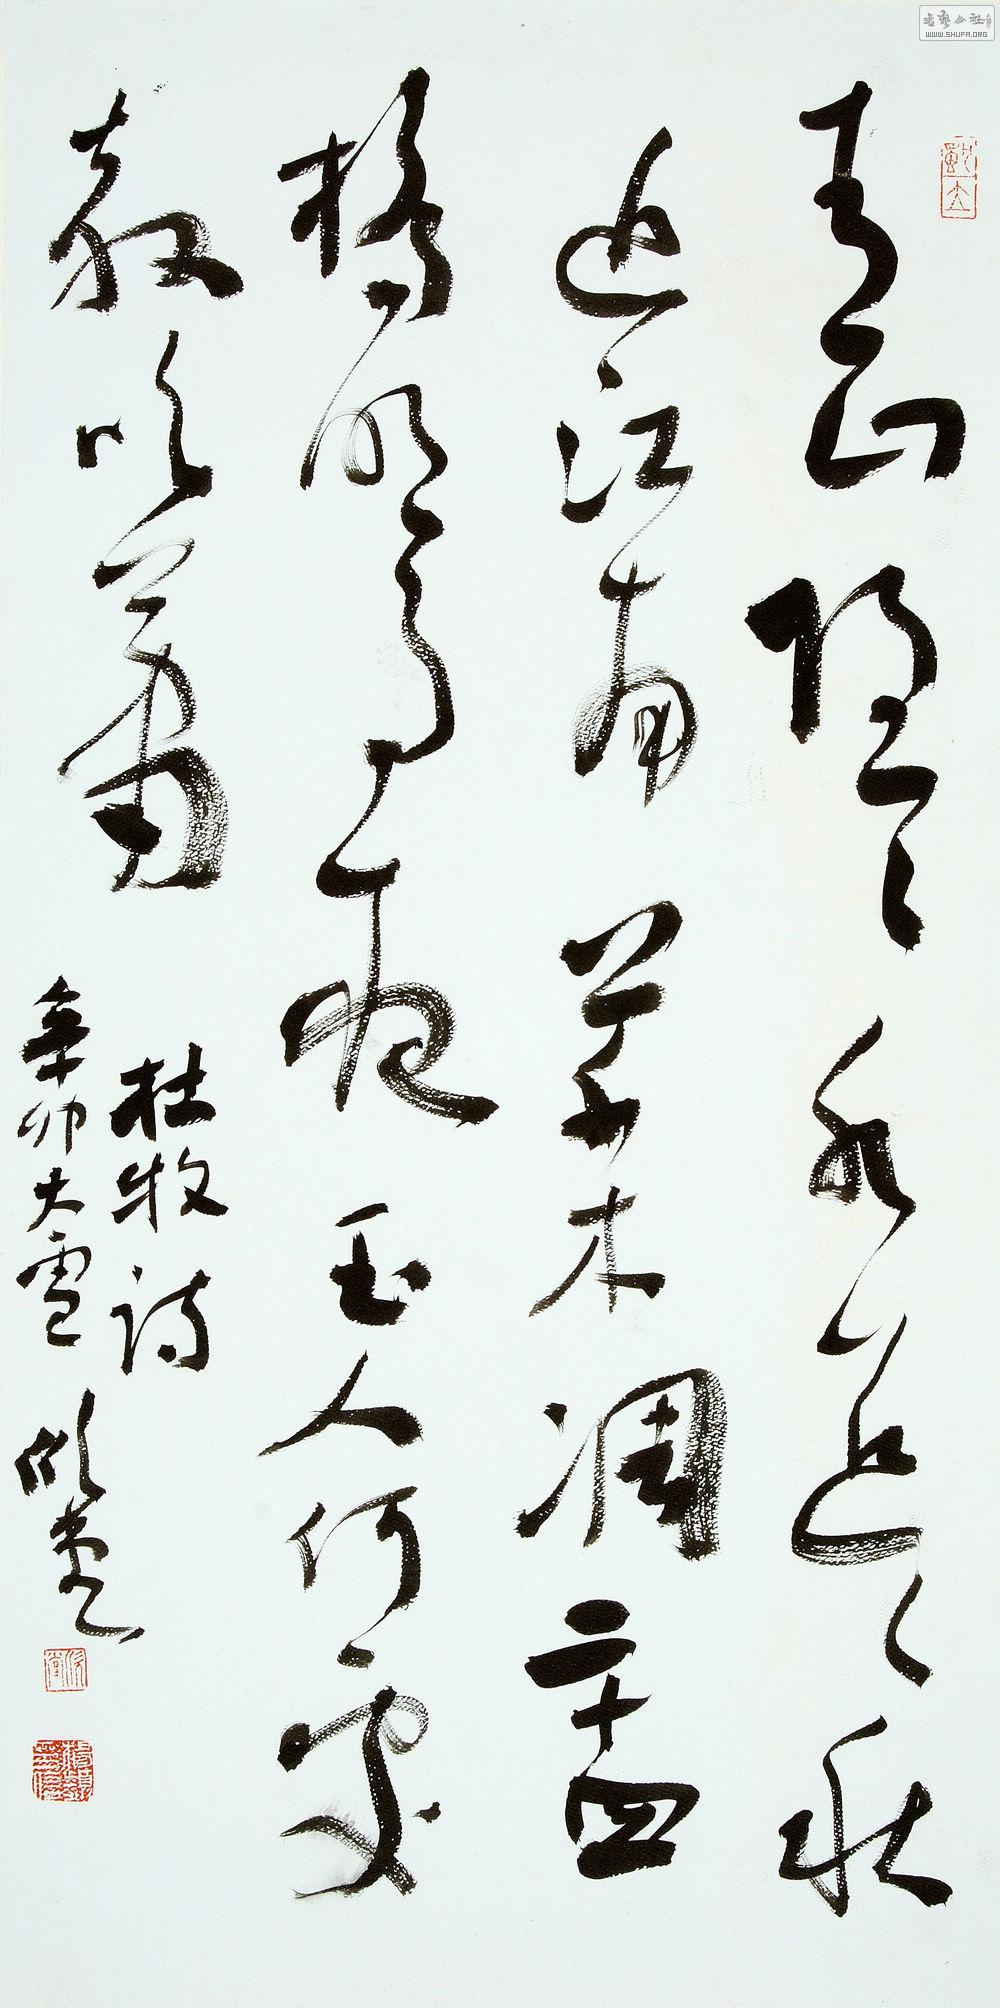 書藝公社
WWW.SHUFA.ORG
青山隱隱水迢迢秋
盡江南草木凋二十四
橋明月夜玉人何處
教吹簫
杜牧詩
辛卯大雪